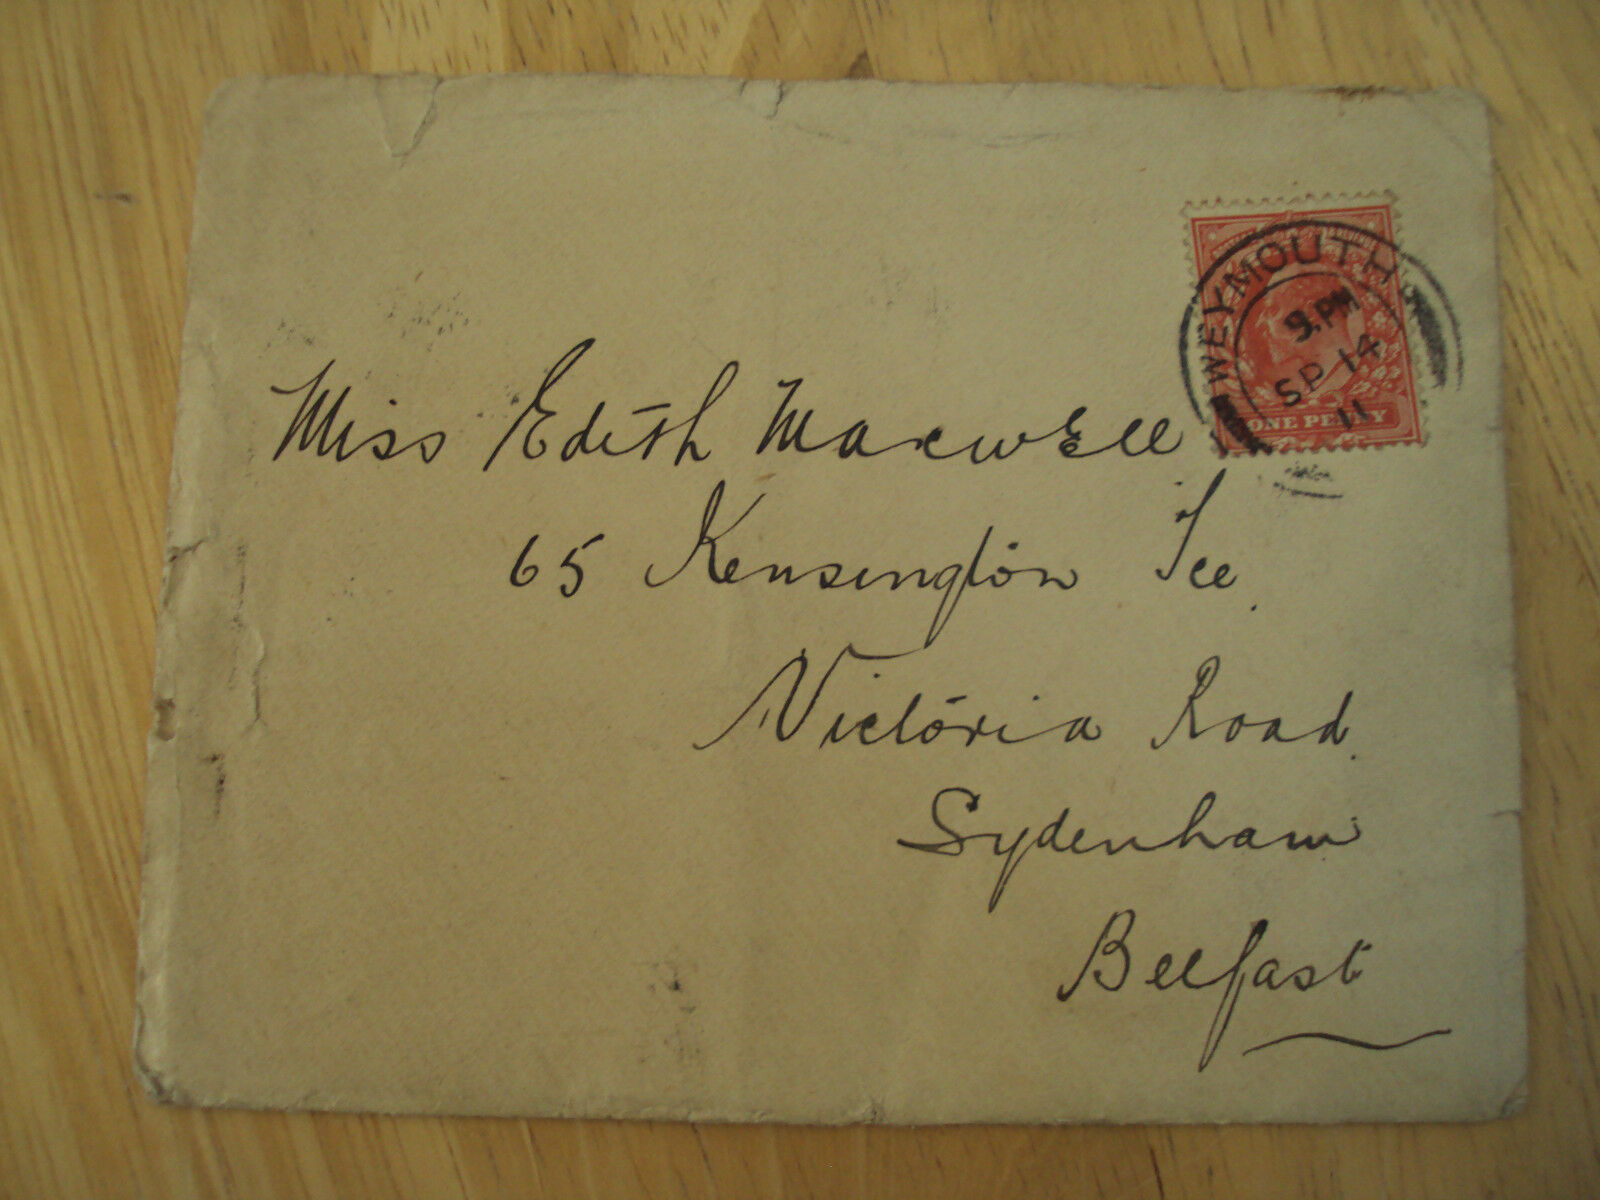 WEYMOUTH
9.PM
SP 14
11
ONE PENNY
Miss Edith Maxwell
65 Kensington Tce.
Victoria Road.
Sydenham
Belfast